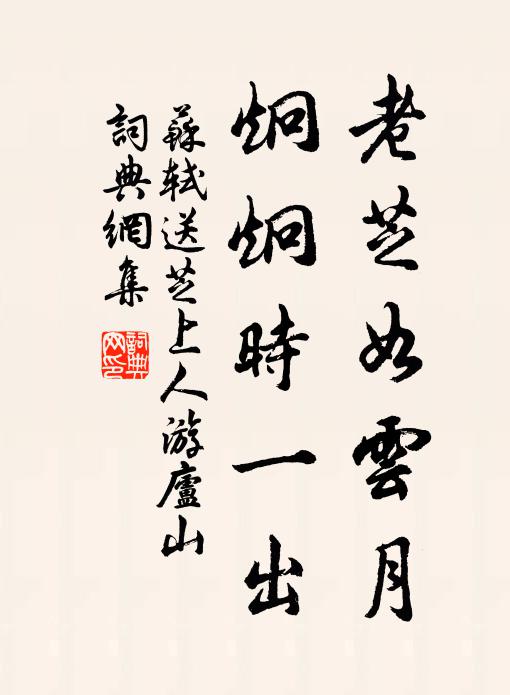 老芝如雲月
炯炯時一出
蘇軾送芝上人游廬山
詞典網集
詞典
网印